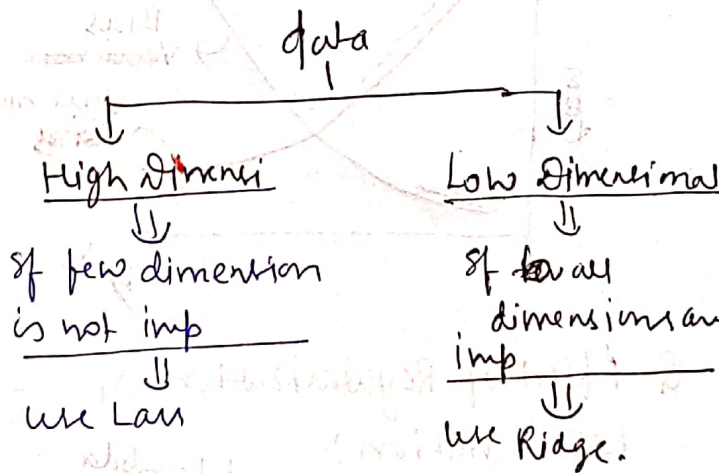 data
High Dimensi
If few dimension
is not imp
use Lass
Low Dimensional
If all
dimensions are
imp
use Ridge.